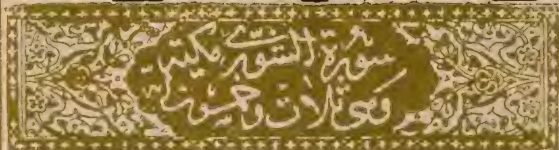 سورة الشورى مكية
وهي ثلاث وخمسون